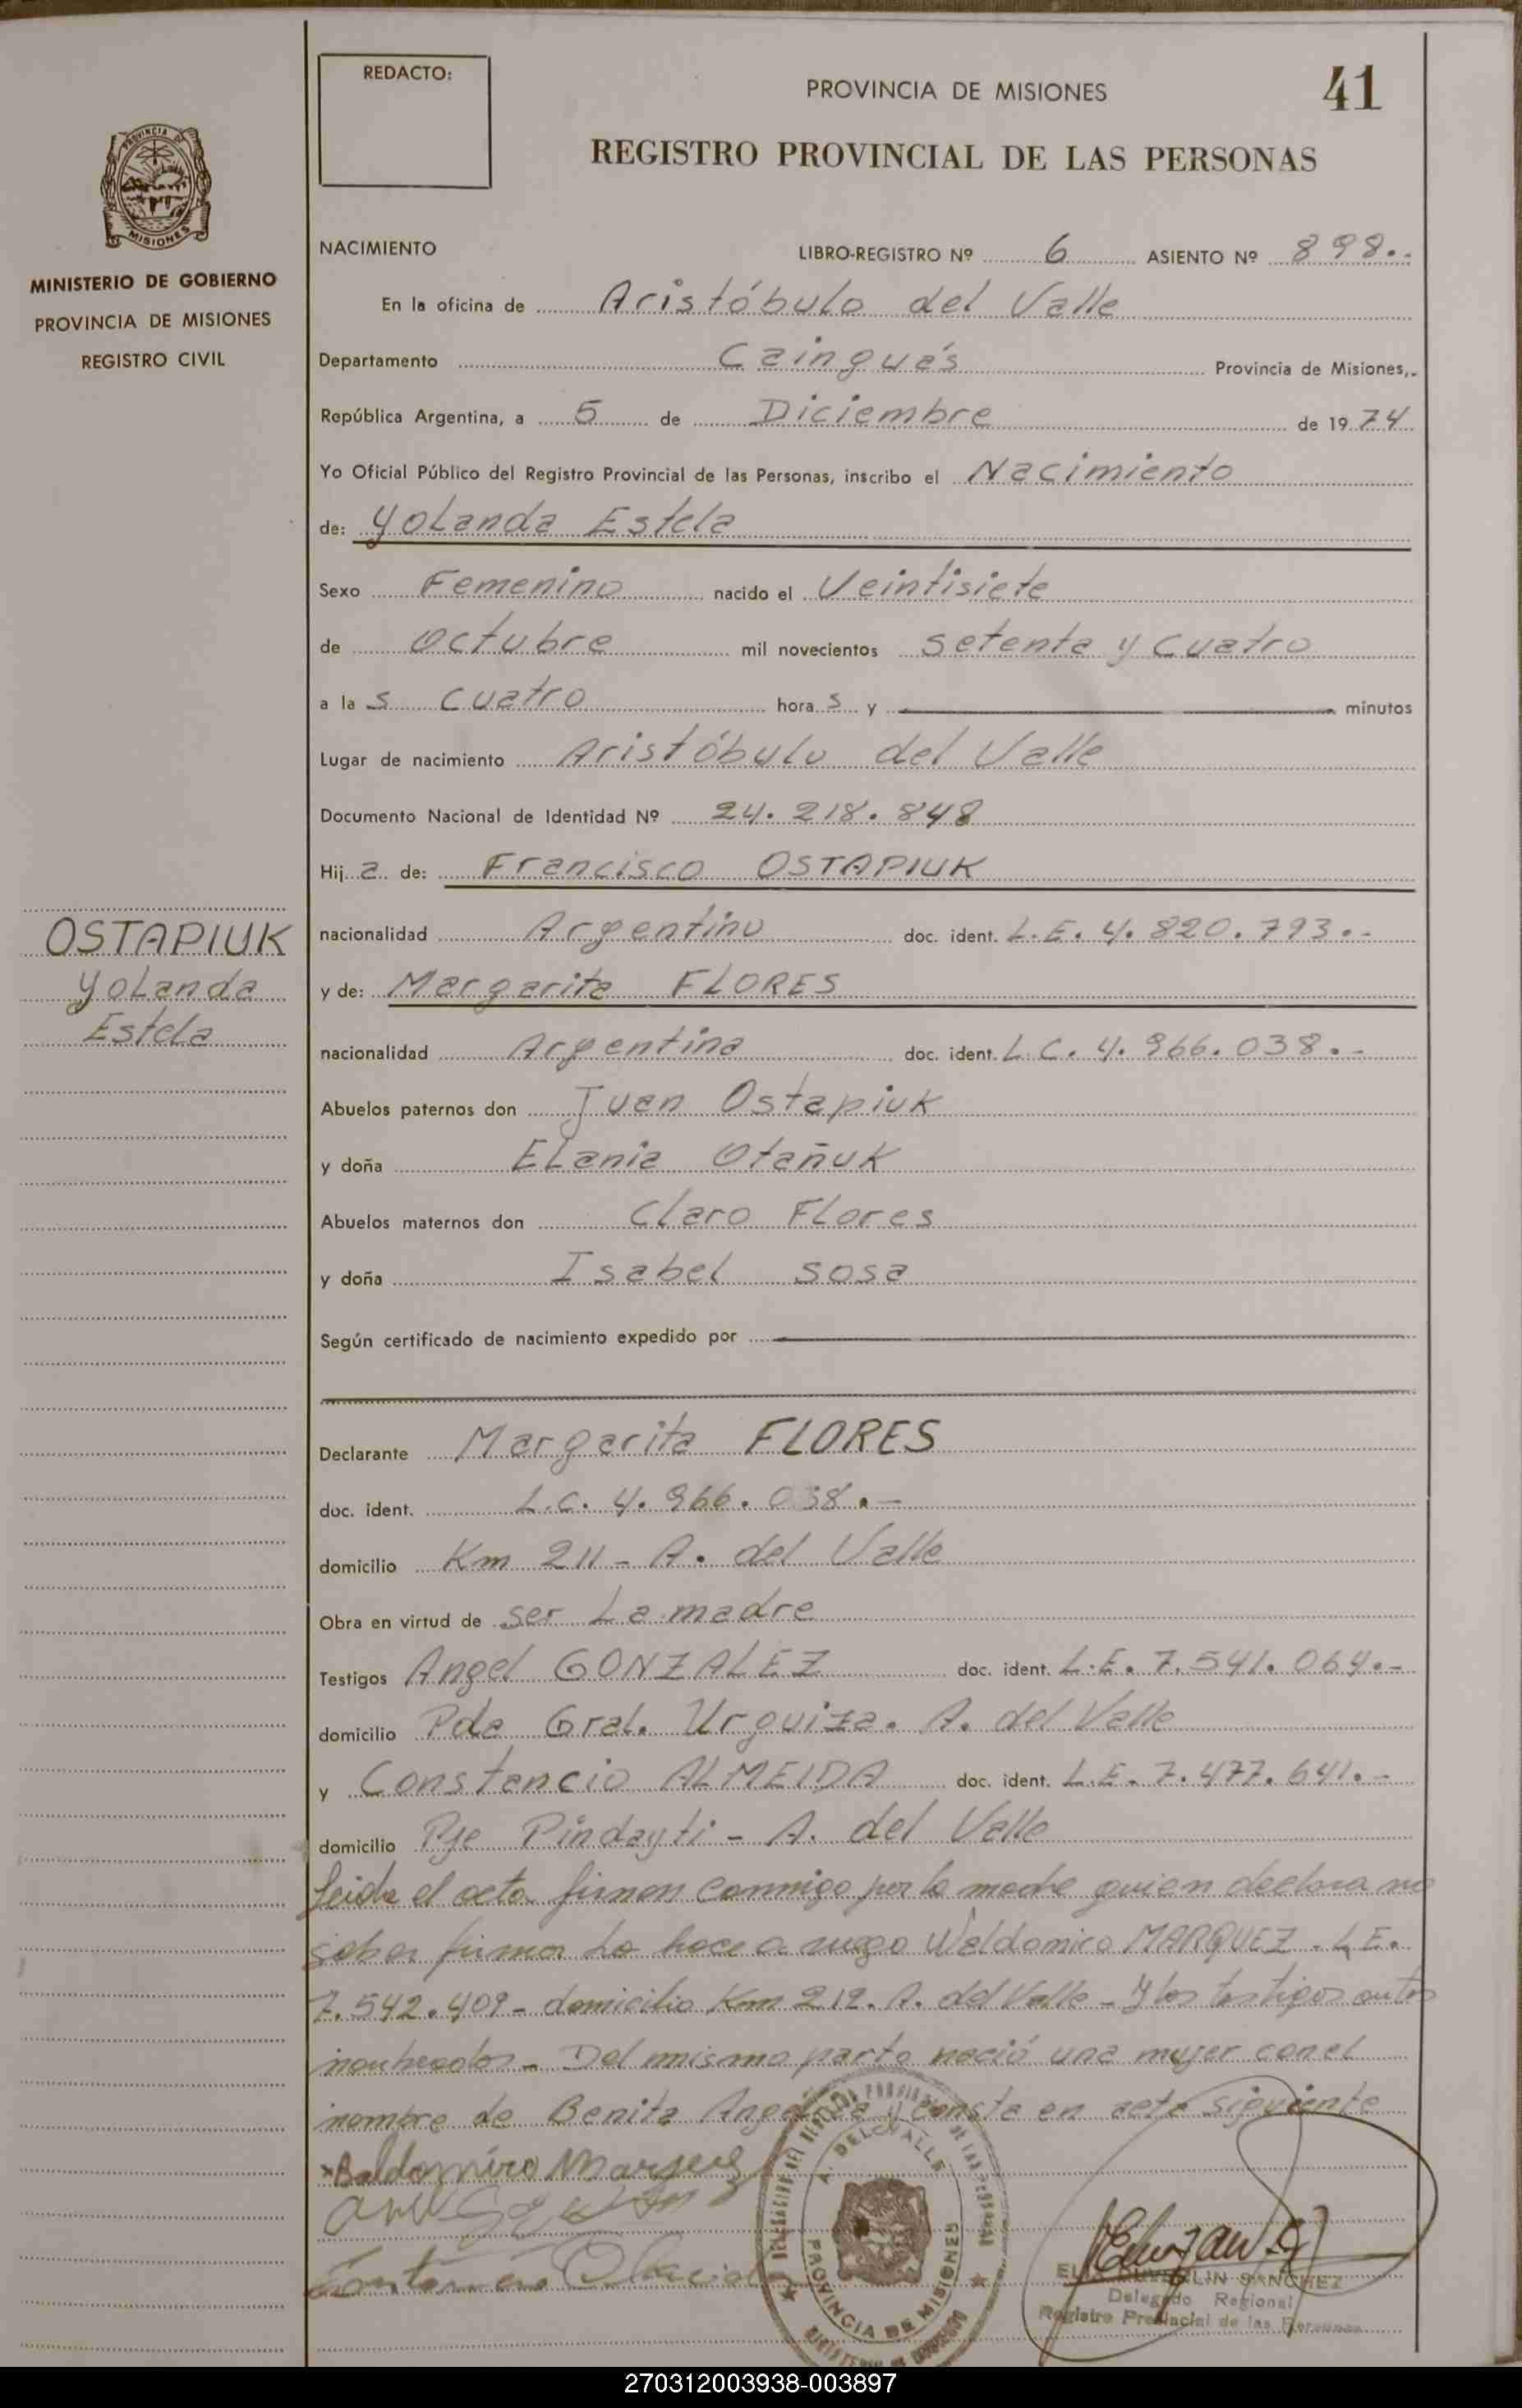 REDACTO:
PROVINCIA DE MISIONES
41
REGISTRO PROVINCIAL DE LAS PERSONAS
PROVINCIA DE
MISIONES
MINISTERIO DE GOBIERNO
PROVINCIA DE MISIONES
REGISTRO CIVIL
NACIMIENTO LIBRO-REGISTRO Nº 6 ASIENTO Nº 898..
En la oficina de Aristóbulo del Valle
Departamento Cainguás Provincia de Misiones,
República Argentina, a 5 de Diciembre de 1974
Yo Oficial Público del Registro Provincial de las Personas, inscribo el Nacimiento
de: Yolanda Estela
Sexo Femenino nacido el Veintisiete
de Octubre mil novecientos setenta y cuatro
a la s cuatro hora s y minutos
Lugar de nacimiento Aristóbulo del Valle
Documento Nacional de Identidad Nº 24.218.848
Hij a de: Francisco OSTAPIUK
OSTAPIUK
Yolanda
Estela
nacionalidad Argentino doc. ident. L.E. 4.820.793.-
y de: Margarita FLORES
nacionalidad Argentina doc. ident. L.C. 4.966.038.-
Abuelos paternos don Juan Ostapiuk
y doña Elania Otañuk
Abuelos maternos don Claro Flores
y doña Isabel Sosa
Según certificado de nacimiento expedido por
Declarante Margarita FLORES
doc. ident. L.C. 4.966.038.-
domicilio Km 211 - A. del Valle
Obra en virtud de ser La madre
Testigos Angel GONZALEZ doc. ident. L.E. 7.541.064.-
domicilio Pda Gral. Urquiza. A. del Valle
y Constancio ALMEIDA doc. ident. L.E. 7.477.641.-
domicilio Pje Pindayti - A. del Valle
Leida el acta firman conmigo por la madre quien declara no
saber firmar Lo hace a ruego Waldomiro MARQUEZ. L.E.
7.542.409 - domicilio Km 212. A. del Valle - Y los testigos antes
nombrados - Del mismo parto nació una mujer con el
nombre de Benita Angelica y consta en acta siguiente
Baldomiro Marquez
A. DEL VALLE
PROVINCIA DE MISIONES
SANCHEZ
Delegado Regional
Registro Provincial de las Personas
270312003938-003897